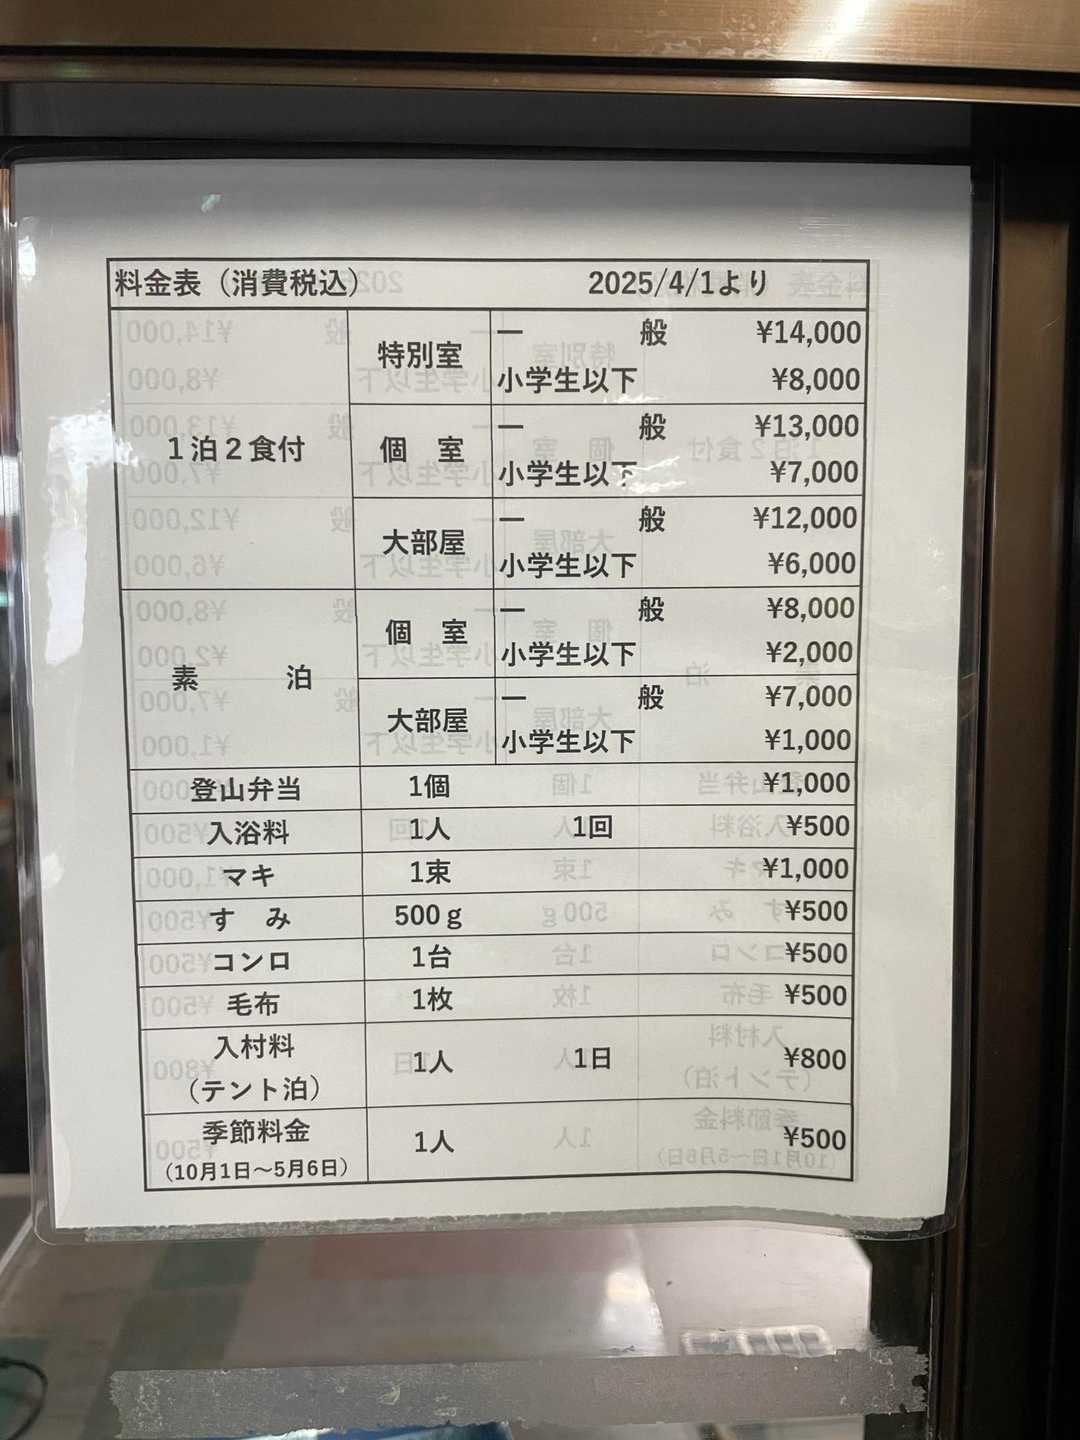 料金表（消費税込） 2025/4/1より
1泊2食付 特別室 一 般 ¥14,000
小学生以下 ¥8,000
個 室 一 般 ¥13,000
小学生以下 ¥7,000
大部屋 一 般 ¥12,000
小学生以下 ¥6,000
素 泊 個 室 一 般 ¥8,000
小学生以下 ¥2,000
大部屋 一 般 ¥7,000
小学生以下 ¥1,000
登山弁当 1個 ¥1,000
入浴料 1人 1回 ¥500
マキ 1束 ¥1,000
すみ 500g ¥500
コンロ 1台 ¥500
毛布 1枚 ¥500
入村料
（テント泊） 1人 1日 ¥800
季節料金
（10月1日～5月6日） 1人 ¥500